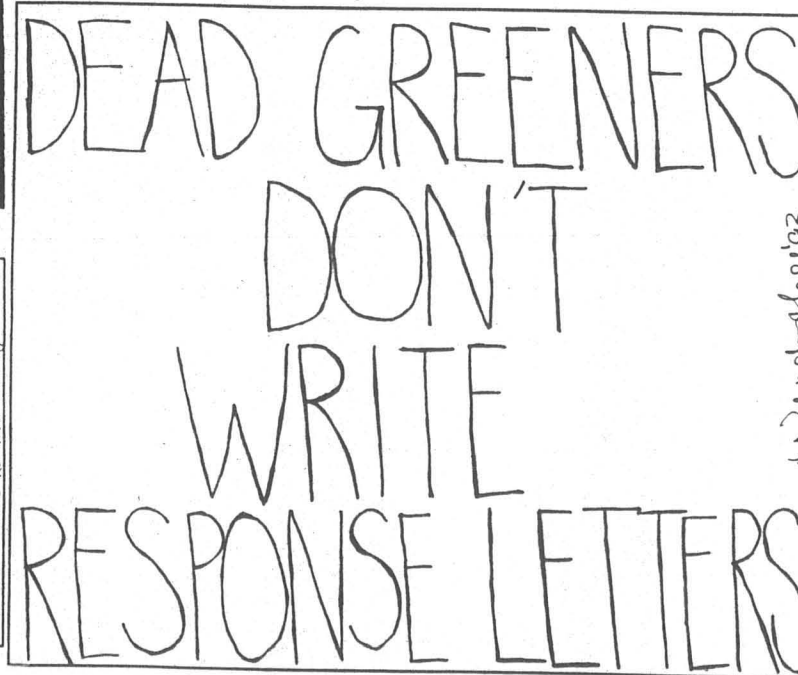 DEAD GREENERS
DON'T
WRITE
RESPONSE LETTERS